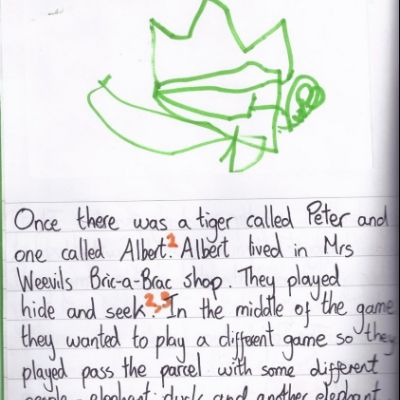 Once there was a tiger called Peter and
one called Albert.² Albert lived in Mrs
Weevils Bric-a-Brac shop. They played
hide and seek.²,³ In the middle of the game
they wanted to play a different game so they
played pass the parcel with some different
people - elephant, duck and another elephant